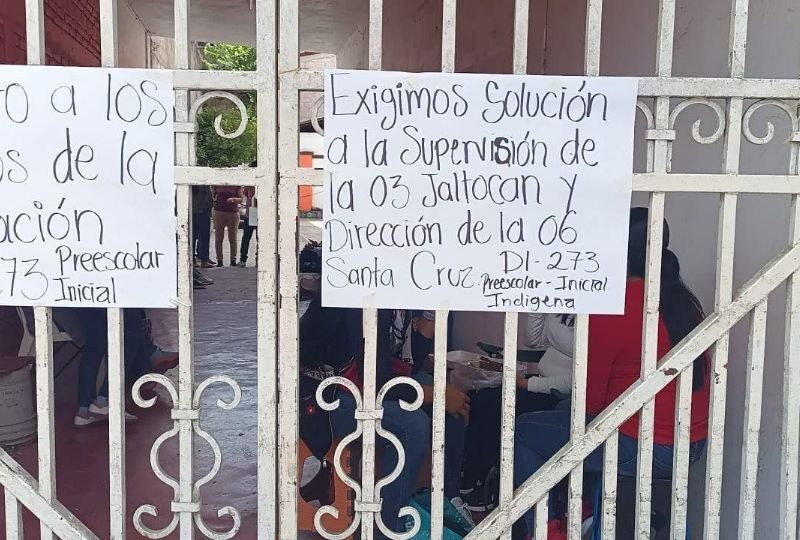 o a los
os de la
ación
73 Preescolar
Inicial
Exigimos Solución
a la Supervisión de
la 03 Jaltocan y
Dirección de la 06
Santa Cruz. DI-273
Preescolar - Inicial
Indigena